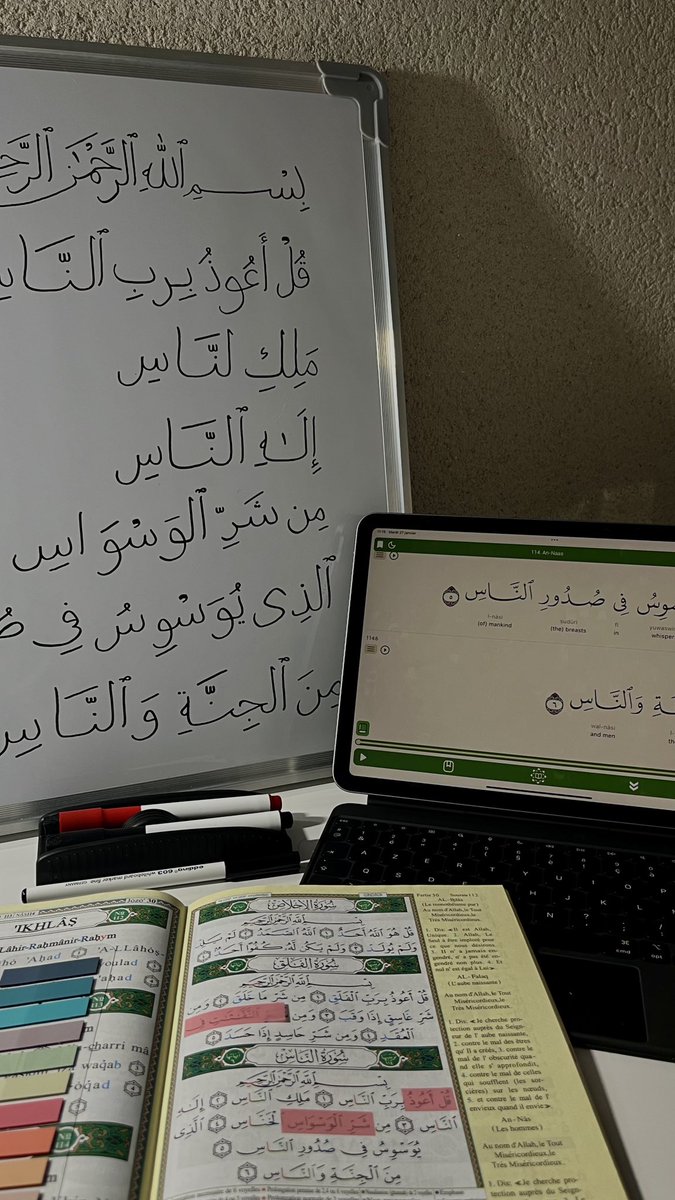 بِسْمِ ٱللهِ ٱلرَّحْمَٰنِ ٱلرَّحِ
قُلْ أَعُوذُ بِرَبِ ٱلنَّاسِ
مَلِكِ لنَّاسِ
إِلَٰهِ ٱلنَّاسِ
مِن شَرِّ ٱلوَسْوَاسِ
ٱلَّذِى يُوَسْوِسُ فِي صُ
مِنَ ٱلْجِنَّةِ وَٱلنَّاسِ
Mardi 27 janvier
114 An-Naas
سْوِسُ فِى صُدُورِ ٱلنَّاسِ ٥
l-nāsi ṣudūri fī yuwaswi
(of) mankind (the) breasts in whisper
114:6
ةِ وَٱلنَّاسِ ٦
wal-nāsi
and men
edding 603 whiteboard marker
'IKHLÂṢ
'Aḥad
oulad
aḥad
-charri mâ
waqab
سُورَةُ الإِخْلَاصِ
بِسْمِ ٱللَّهِ ٱلرَّحْمَٰنِ ٱلرَّحِيمِ
قُلْ هُوَ ٱللَّهُ أَحَدٌ ١ ٱللَّهُ ٱلصَّمَدُ ٢ لَمْ يَلِدْ
وَلَمْ يُولَدْ ٣ وَلَمْ يَكُن لَّهُۥ كُفُوًا أَحَدٌ ٤
سُورَةُ الفَلَقِ
بِسْمِ ٱللَّهِ ٱلرَّحْمَٰنِ ٱلرَّحِيمِ
قُلْ أَعُوذُ بِرَبِّ ٱلْفَلَقِ ١ مِن شَرِّ مَا خَلَقَ ٢ وَمِن
شَرِّ غَاسِقٍ إِذَا وَقَبَ ٣ وَمِن شَرِّ ٱلنَّفَّٰثَٰتِ فِى
ٱلْعُقَدِ ٤ وَمِن شَرِّ حَاسِدٍ إِذَا حَسَدَ ٥
سُورَةُ النَّاسِ
بِسْمِ ٱللَّهِ ٱلرَّحْمَٰنِ ٱلرَّحِيمِ
قُلْ أَعُوذُ بِرَبِّ ٱلنَّاسِ ١ مَلِكِ ٱلنَّاسِ ٢ إِلَٰهِ
ٱلنَّاسِ ٣ مِن شَرِّ ٱلْوَسْوَاسِ ٱلْخَنَّاسِ ٤ ٱلَّذِى
يُوَسْوِسُ فِى صُدُورِ ٱلنَّاسِ ٥
مِنَ ٱلْجِنَّةِ وَٱلنَّاسِ ٦
Partie 30 Sourate 112
AL-Iḫlâṣ
(Le monothéisme pur)
Au nom d'Allah, le Tout
Miséricordieux, le
Très Miséricordieux.
1. Dis: «Il est Allah,
Unique. 2. Allah, Le
Seul à être imploré pour
ce que nous désirons.
3. Il n'a jamais en-
gendré, n'a pas été en-
gendré non plus. 4. Et
nul n'est égal à Lui».
AL-Falaq
(L'aube naissante)
Au nom d'Allah, le Tout
Miséricordieux, le
Très Miséricordieux.
1. Dis: «Je cherche pro-
tection auprès du Seign-
eur de l'aube naissante,
2. contre le mal des êtres
qu'Il a créés, 3. contre le
mal de l'obscurité qua-
nd elle s'approfondit,
4. contre le mal de celles
qui soufflent (les sor-
cières) sur les nœuds,
5. et contre le mal de l'
envieux quand il envie».
An-Nâs
(Les hommes)
Au nom d'Allah, le Tout
Miséricordieux, le
Très Miséricordieux.
1. Dis: «Je cherche